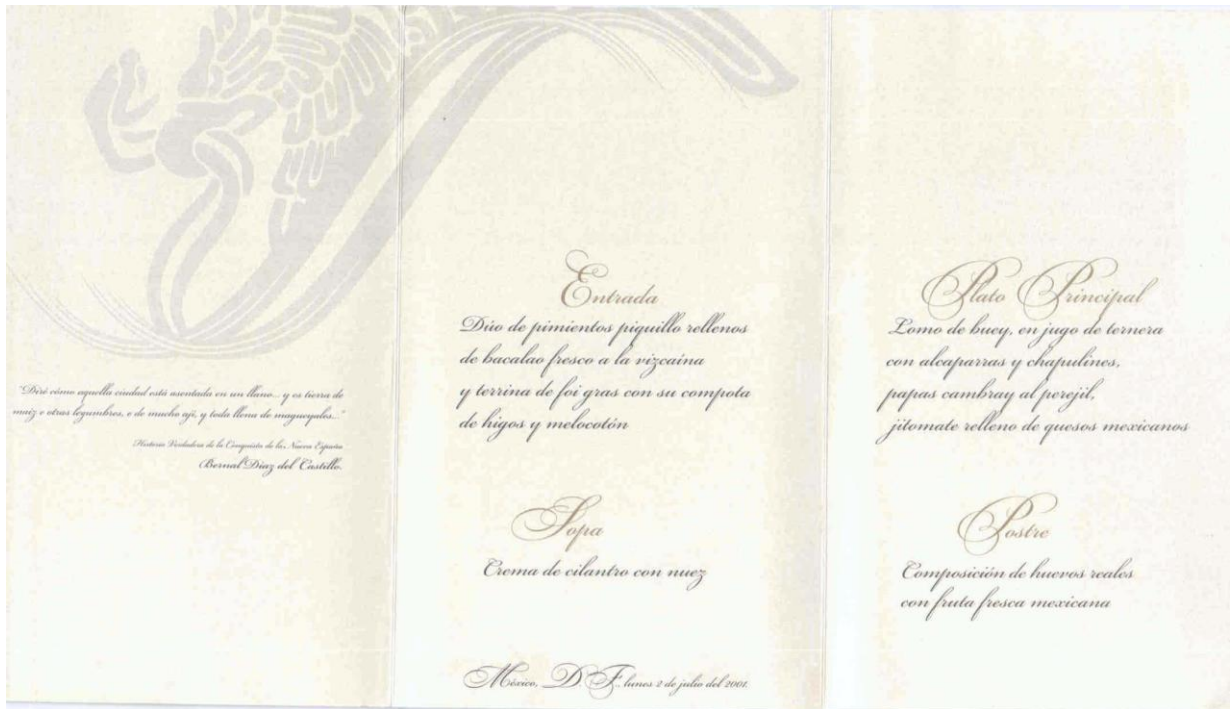 "Diré cómo aquella ciudad está asentada en un llano... y es tierra de
maíz e otras legumbres, e de mucho ají, y toda llena de magueyales..."
Historia Verdadera de la Conquista de la Nueva España
Bernal Díaz del Castillo.
Entrada
Dúo de pimientos piquillo rellenos
de bacalao fresco a la vizcaína
y terrina de foi gras con su compota
de higos y melocotón
Sopa
Crema de cilantro con nuez
México, D. F., lunes 2 de julio del 2001.
Plato Principal
Lomo de buey, en jugo de ternera
con alcaparras y chapulines,
papas cambray al perejil,
jitomate relleno de quesos mexicanos
Postre
Composición de huevos reales
con fruta fresca mexicana